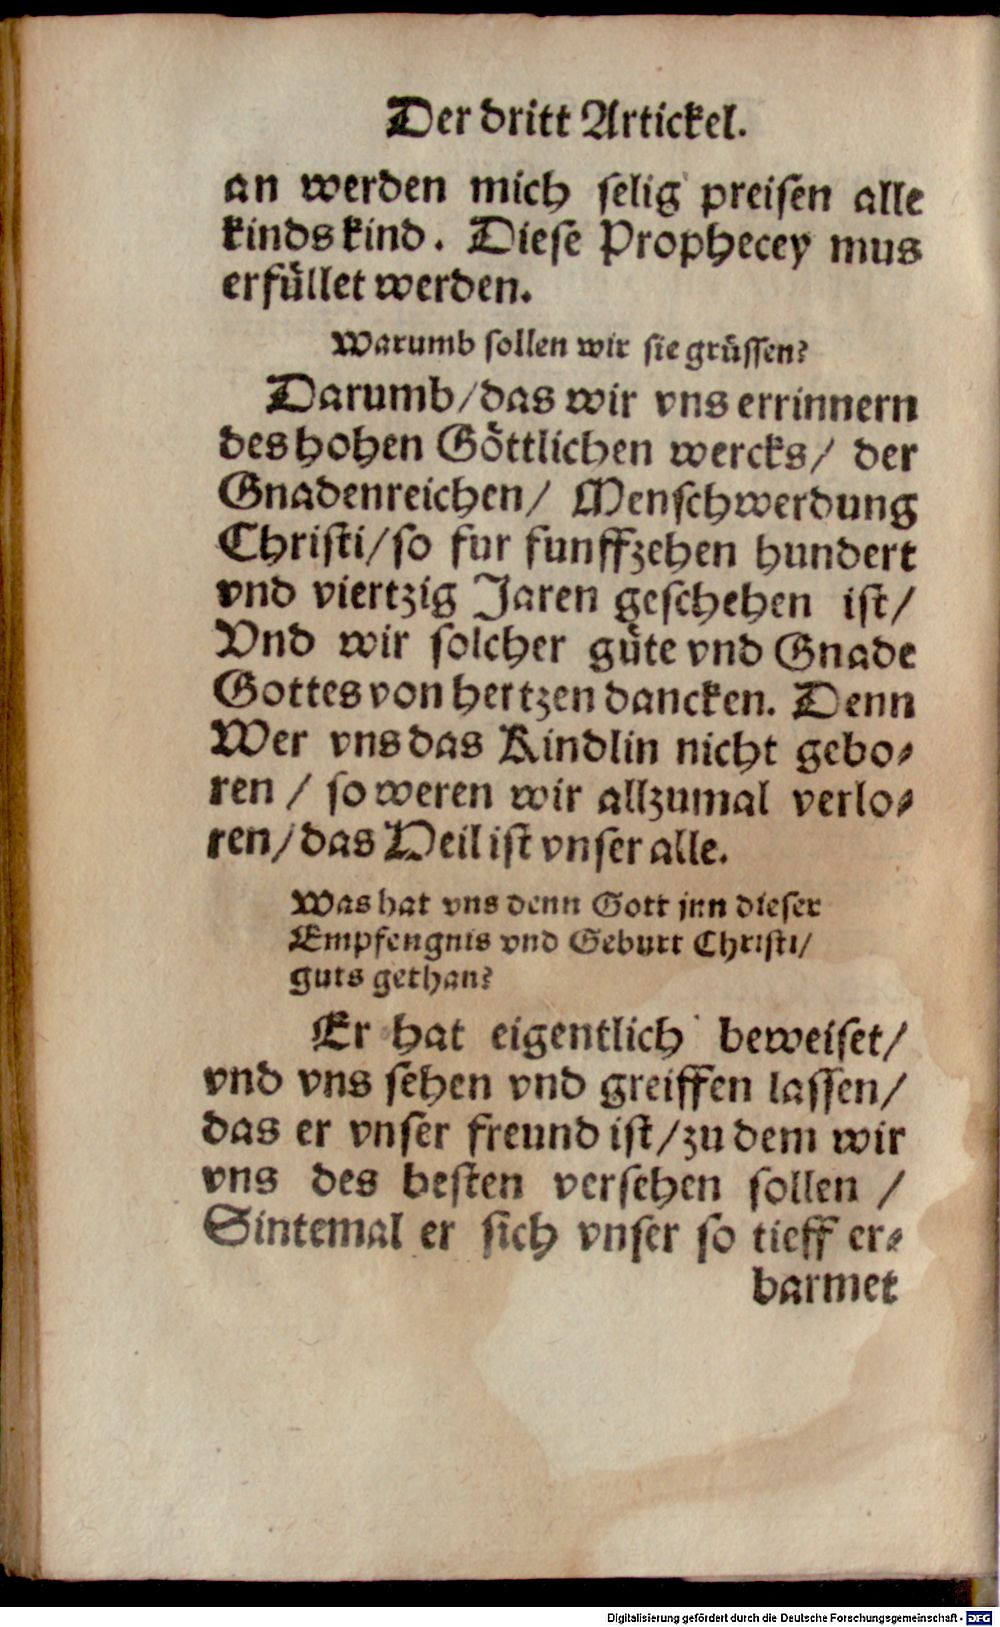 Der dritt Artickel.
an werden mich selig preisen alle
kinds kind. Diese Prophecey mus
erfüllet werden.
Warumb sollen wir sie grüssen?
Darumb/das wir vns errinnern
des hohen Göttlichen wercks/ der
Gnadenreichen/ Menschwerdung
Christi/so fur funffzehen hundert
vnd viertzig Jaren geschehen ist/
Vnd wir solcher güte vnd Gnade
Gottes von hertzen dancken. Denn
Wer vns das Kindlin nicht gebo-
ren / so weren wir allzumal verlo-
ren/das Heil ist vnser alle.
Was hat vns denn Gott jnn dieser
Empfengnis vnd Geburt Christi/
guts gethan?
Er hat eigentlich beweiset/
vnd vns sehen vnd greiffen lassen/
das er vnser freund ist/zu dem wir
vns des besten versehen sollen /
Sintemal er sich vnser so tieff er-
barmet
Digitalisierung gefördert durch die Deutsche Forschungsgemeinschaft - DFG